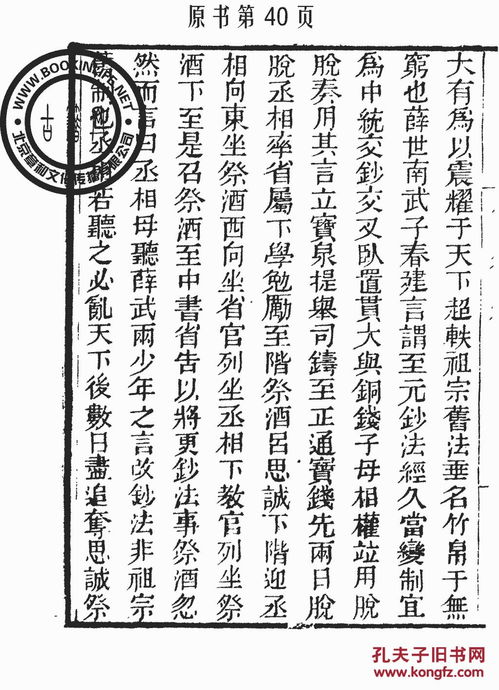 原书第40页
大有爲以震耀于天下超軼祖宗舊法垂名竹帛于無
窮也薛世南武子春建言謂至元鈔法經久當變制宜
爲中統交鈔交叉臥置貫大與銅錢子母相權竝用脫
脫奏用其言立寶泉提舉司鑄至正通寶錢先兩日脫
脫丞相率省屬下學勉勵至階祭酒呂思誠下階迎丞
相向東坐祭酒西向坐省官列坐丞相下教官列坐祭
酒下至是召祭酒至中書省吿以將更鈔法事祭酒忽
然而言曰丞相毋聽薛武兩少年之言改鈔法非祖宗
制也丞相若聽之必亂天下後數日盡追奪思誠祭
WWW.BOOKINLIFE.NET
孔夫子旧书网
www.kongfz.com